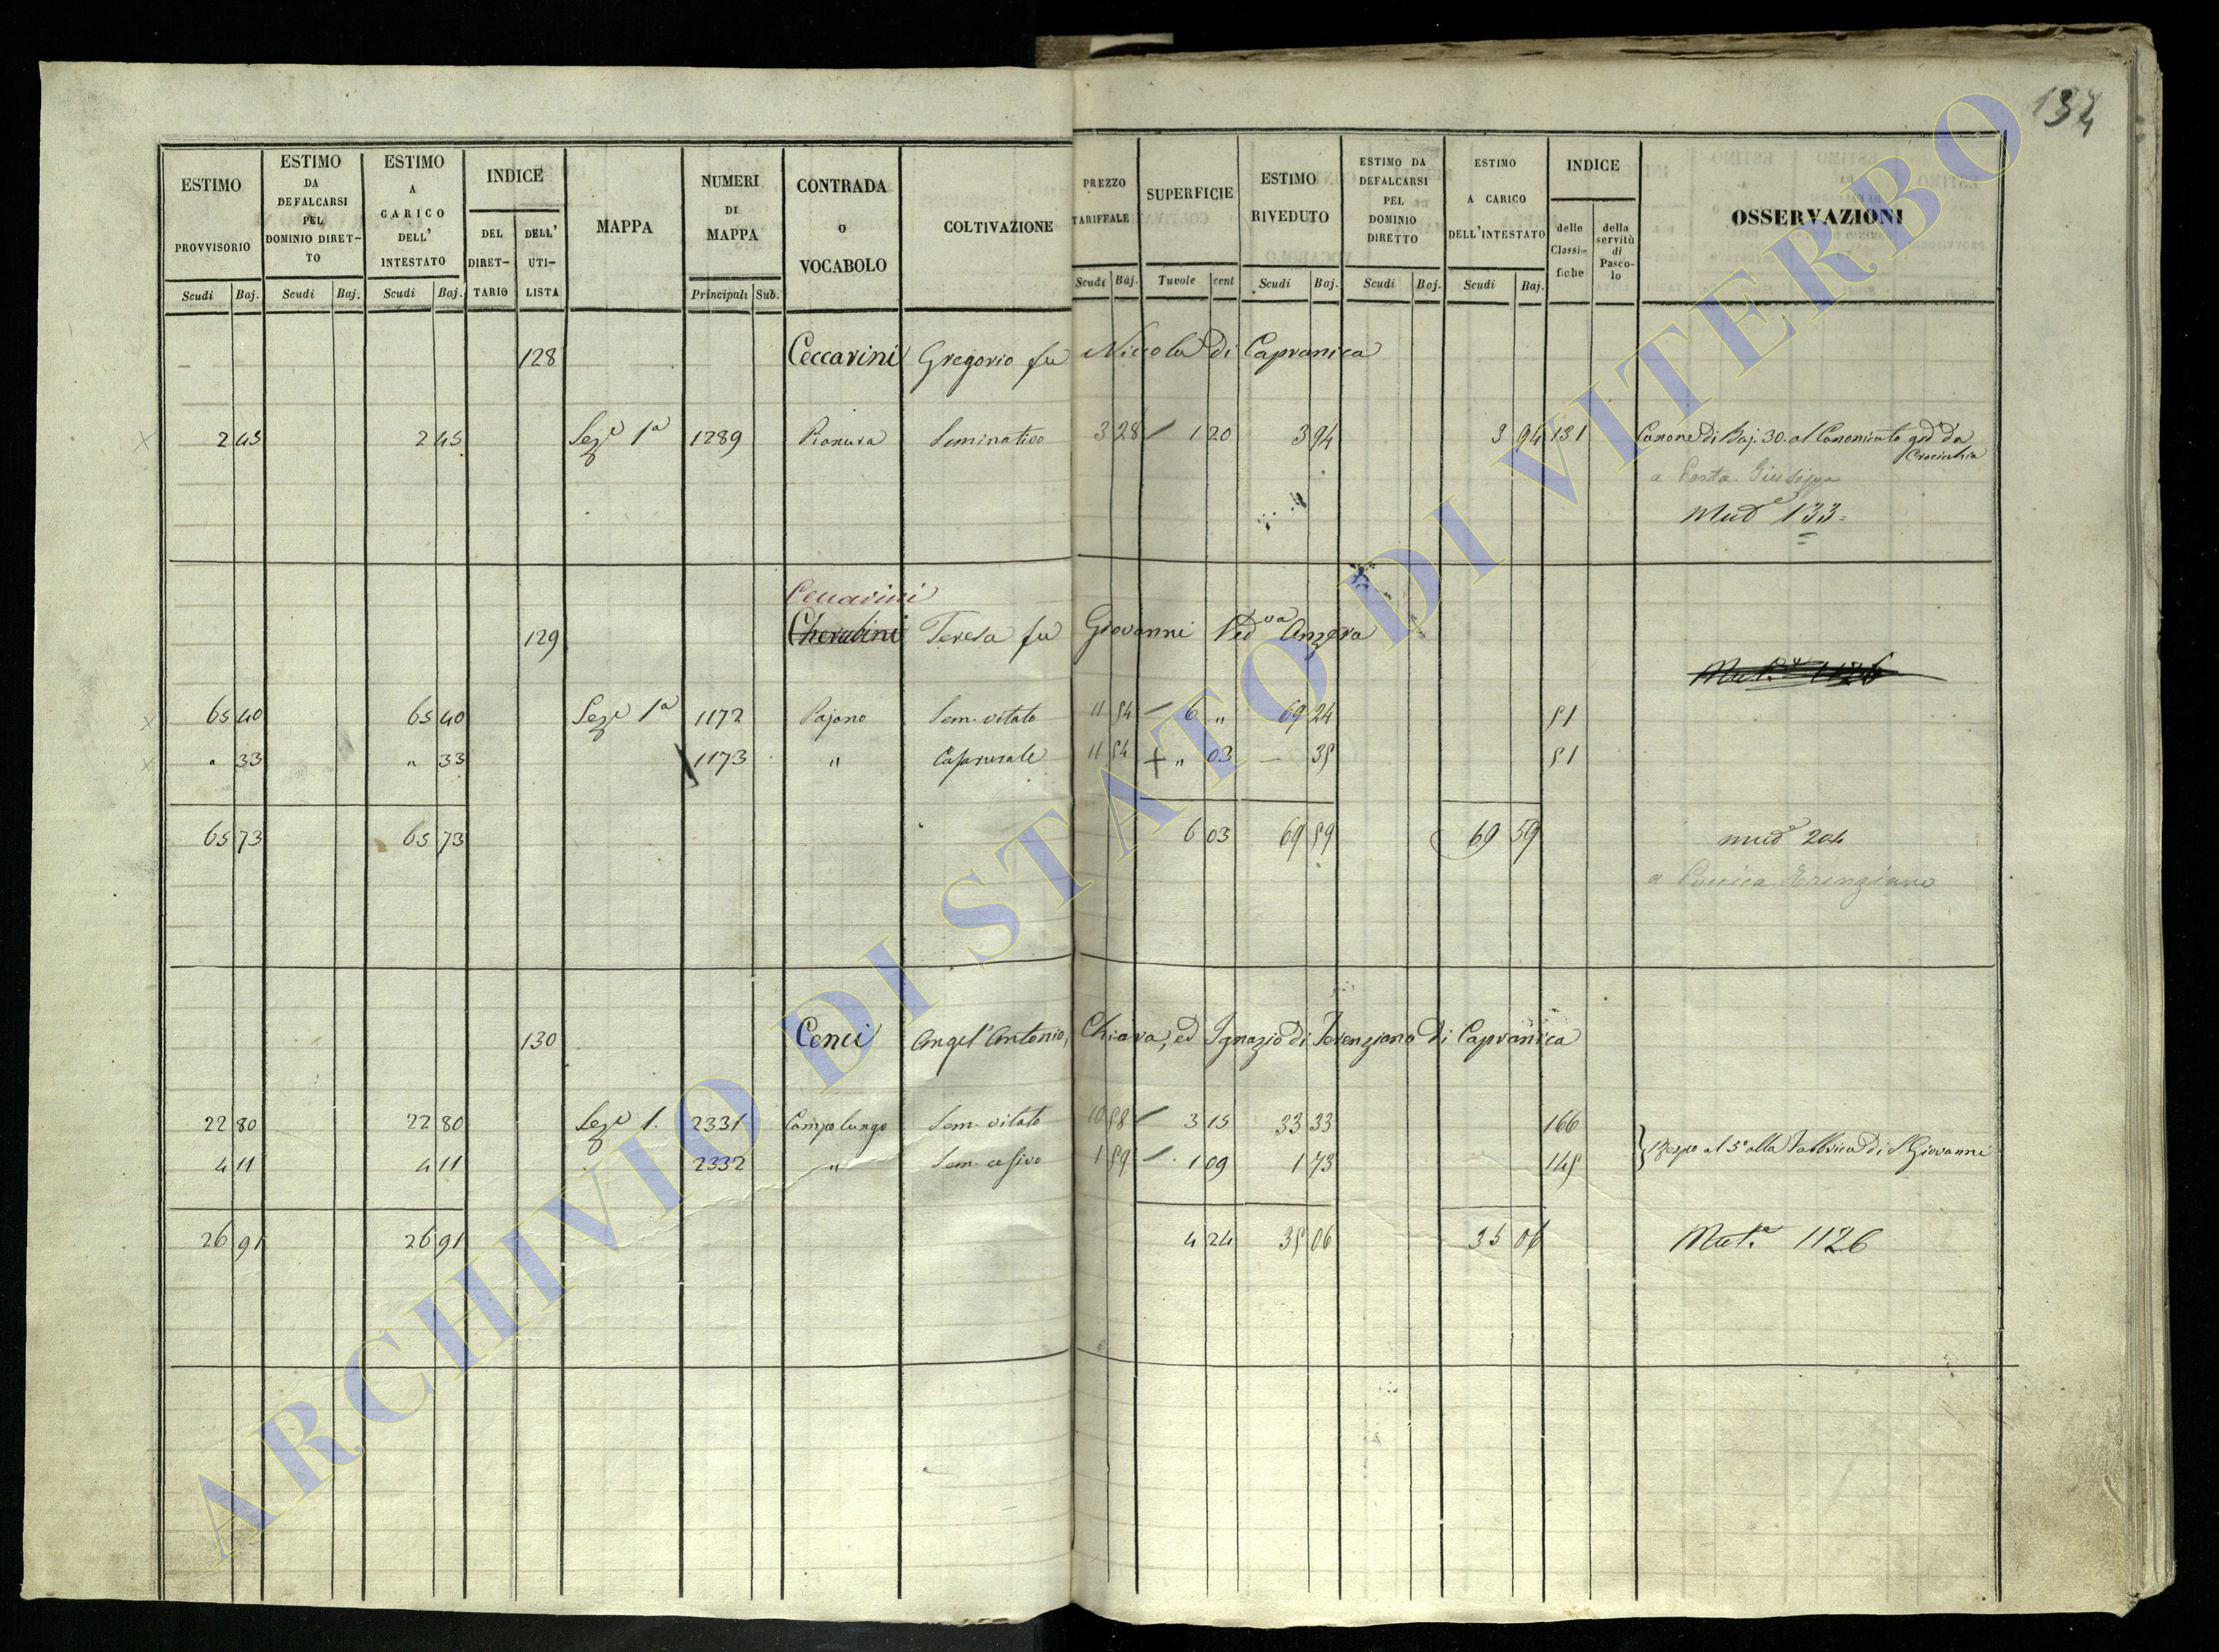 134
ESTIMO PROVVISORIO Scudi Baj.
ESTIMO DA DEFALCARSI PEL DOMINIO DIRETTO Scudi Baj.
ESTIMO A CARICO DELL' INTESTATO Scudi Baj.
INDICE DEL DIRETTARIO DELL' UTILISTA
MAPPA
NUMERI DI MAPPA Principali Sub.
CONTRADA o VOCABOLO
COLTIVAZIONE
PREZZO TARIFFALE Scudi Baj.
SUPERFICIE Tavole cent
ESTIMO RIVEDUTO Scudi Baj.
ESTIMO DA DEFALCARSI PEL DOMINIO DIRETTO Scudi Baj.
ESTIMO A CARICO DELL'INTESTATO Scudi Baj.
INDICE delle Classifiche della servitù di Pascolo
OSSERVAZIONI
128 Ceccarini Gregorio fu Niccola di Capranica
2 45 2 45 Seze 1a 1289 Pianura Seminativo 3 28 1 20 3 94 3 94 131 Canone di Baj. 30. al Canonicato
a Porta Giuseppe
Mud 133=
Ceccarini
129 Cherubini Teresa fu Giovanni Vedva Anzera
Mut. 1126
65 40 65 40 Seze 1a 1172 Pajano Sem. vitato 11 54 6 " 69 24 51
" 33 " 33 1173 " Casa rurale 11 54 " 03 — 35 51
65 73 65 73 6 03 69 59 69 59 mud 204
a
130 Cenci Angel'Antonio, Chiara, ed Ignazio di Terenziano di Capranica
22 80 22 80 Seze 1. 2331 Campo lungo Sem. vitato 10 58 3 15 33 33 166
4 11 4 11 2332 " Sem. cesivo 1 59 1 09 1 73 145 al 5° alla Fabbrica di S. Giovanni
26 91 26 91 4 24 35 06 35 06 Mut. 1126
ARCHIVIO DI STATO DI VITERBO